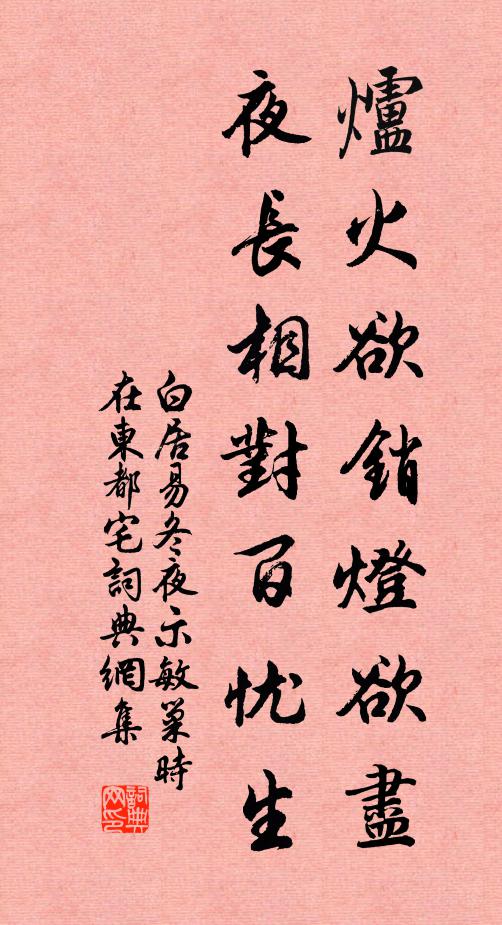 爐火欲銷燈欲盡
夜長相對百忧生
白居易冬夜示敏巢時
在東都宅詞典網集
詞典網印